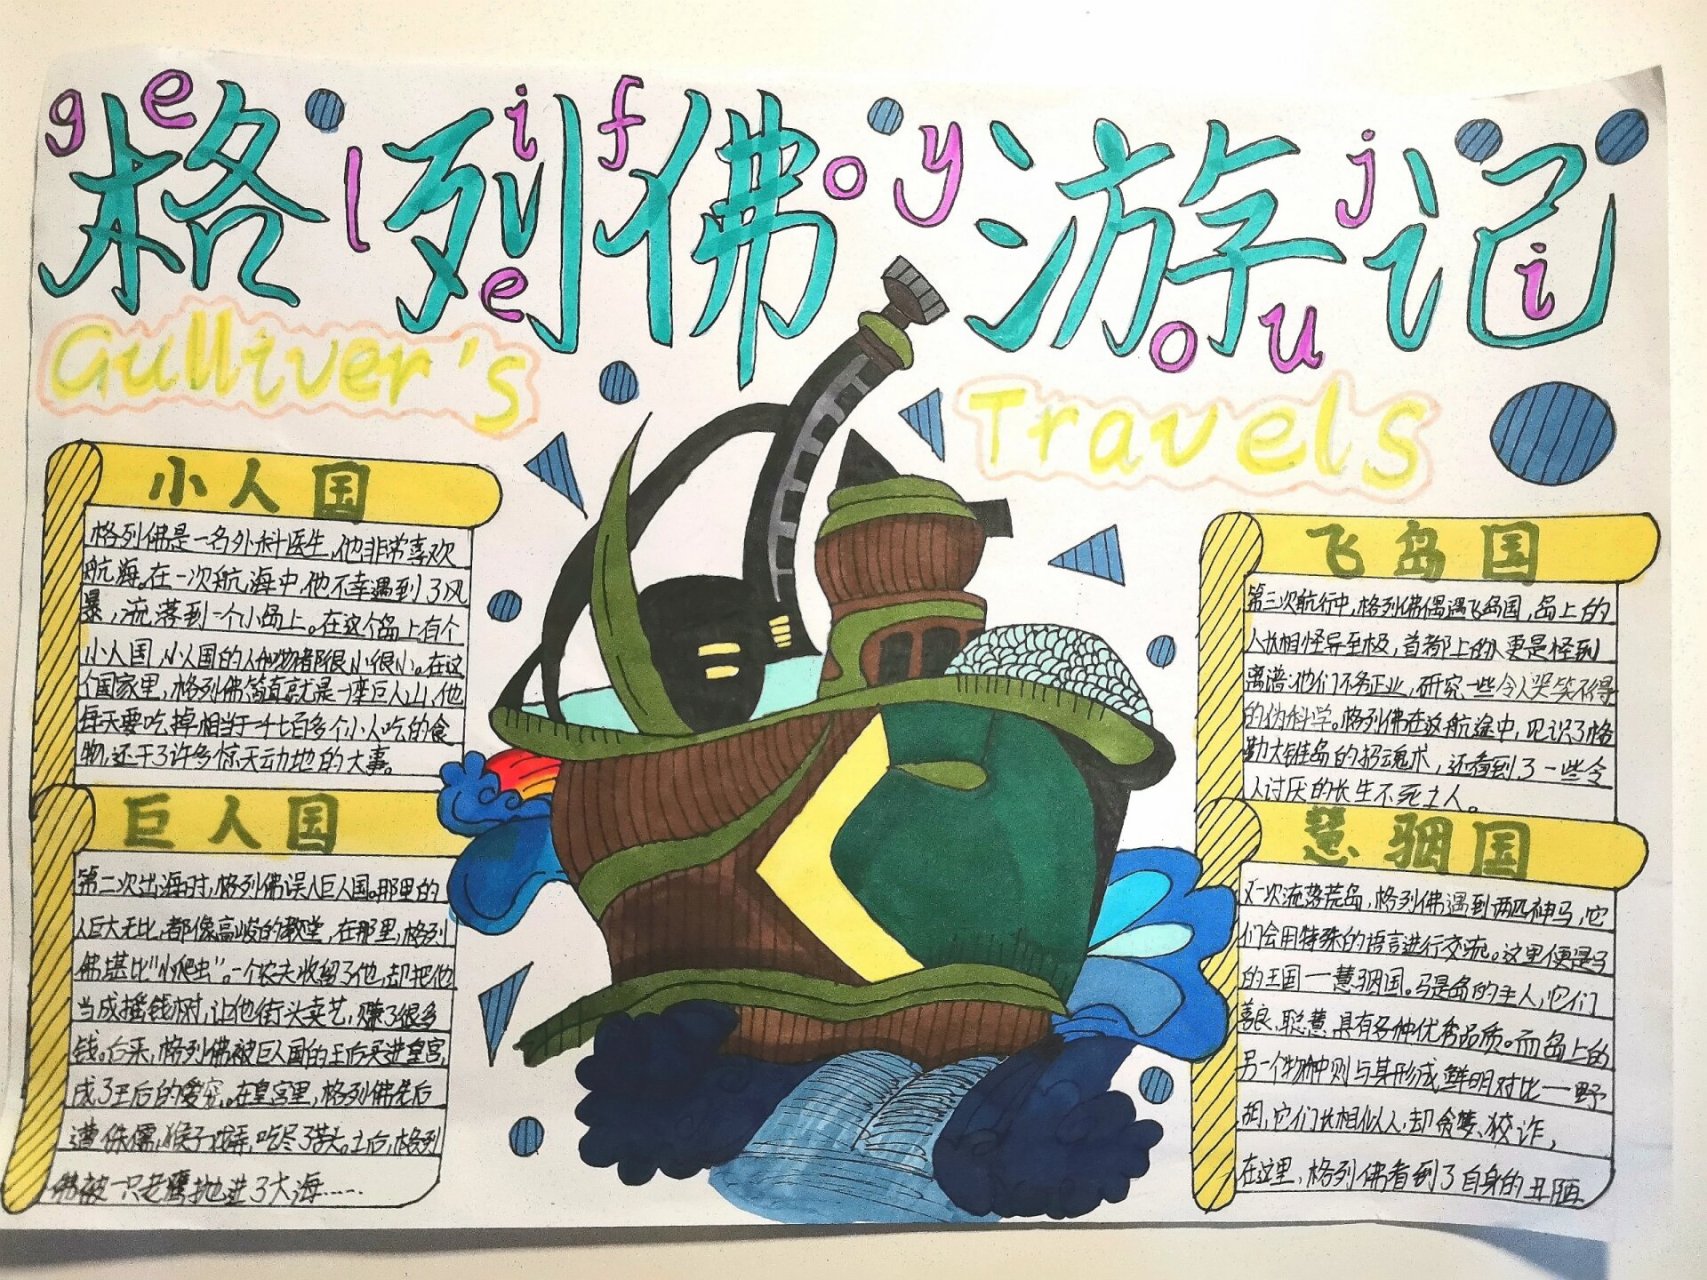 ge l ie if o y ou j i
格列佛游记
Gulliver's Travels
小人国
格列佛是一名外科医生,他非常喜欢
航海。在一次航海中他不幸遇到了风
暴,流落到一个小岛上。在这个岛上有个
小人国,小人国的人和物都很小很小。在这
个国家里,格列佛简直就是一座巨人山,他
每天要吃掉相当于一千七百多个小人吃的食
物,还干了许多惊天动地的大事。
巨人国
第二次出海时,格列佛误入巨人国。那里的
人巨大无比,都像高峻的教堂,在那里,格列
佛堪比“小爬虫”。一个农夫收留了他,却把他
当成摇钱树,让他街头卖艺,赚了很多
钱。后来,格列佛被巨人国的王后买进皇宫
成了王后的爱宠。在皇宫里,格列佛先后
遭侏儒,猴子戏弄,吃尽了苦头。最后,格列
佛被一只老鹰抛进了大海……
飞岛国
第三次航行中,格列佛偶遇飞岛国,岛上的
人长相怪异至极,首都上的人更是怪到
离谱:他们不务正业,研究一些令人哭笑不得
的伪科学。格列佛在这航途中,见识了格
勒大锥岛的招魂术,还看到了一些令
人讨厌的长生不死之人。
慧骃国
又一次流落荒岛,格列佛遇到两匹神马,它
们会用特殊的语言进行交流。这里便是马
的王国——慧骃国。马是岛的主人,它们
善良、聪慧,具有多种优秀品质。而岛上的
另一个物种则与其形成鲜明对比——野
胡,它们长相似人,却贪婪、狡诈,
在这里,格列佛看到了自身的丑陋